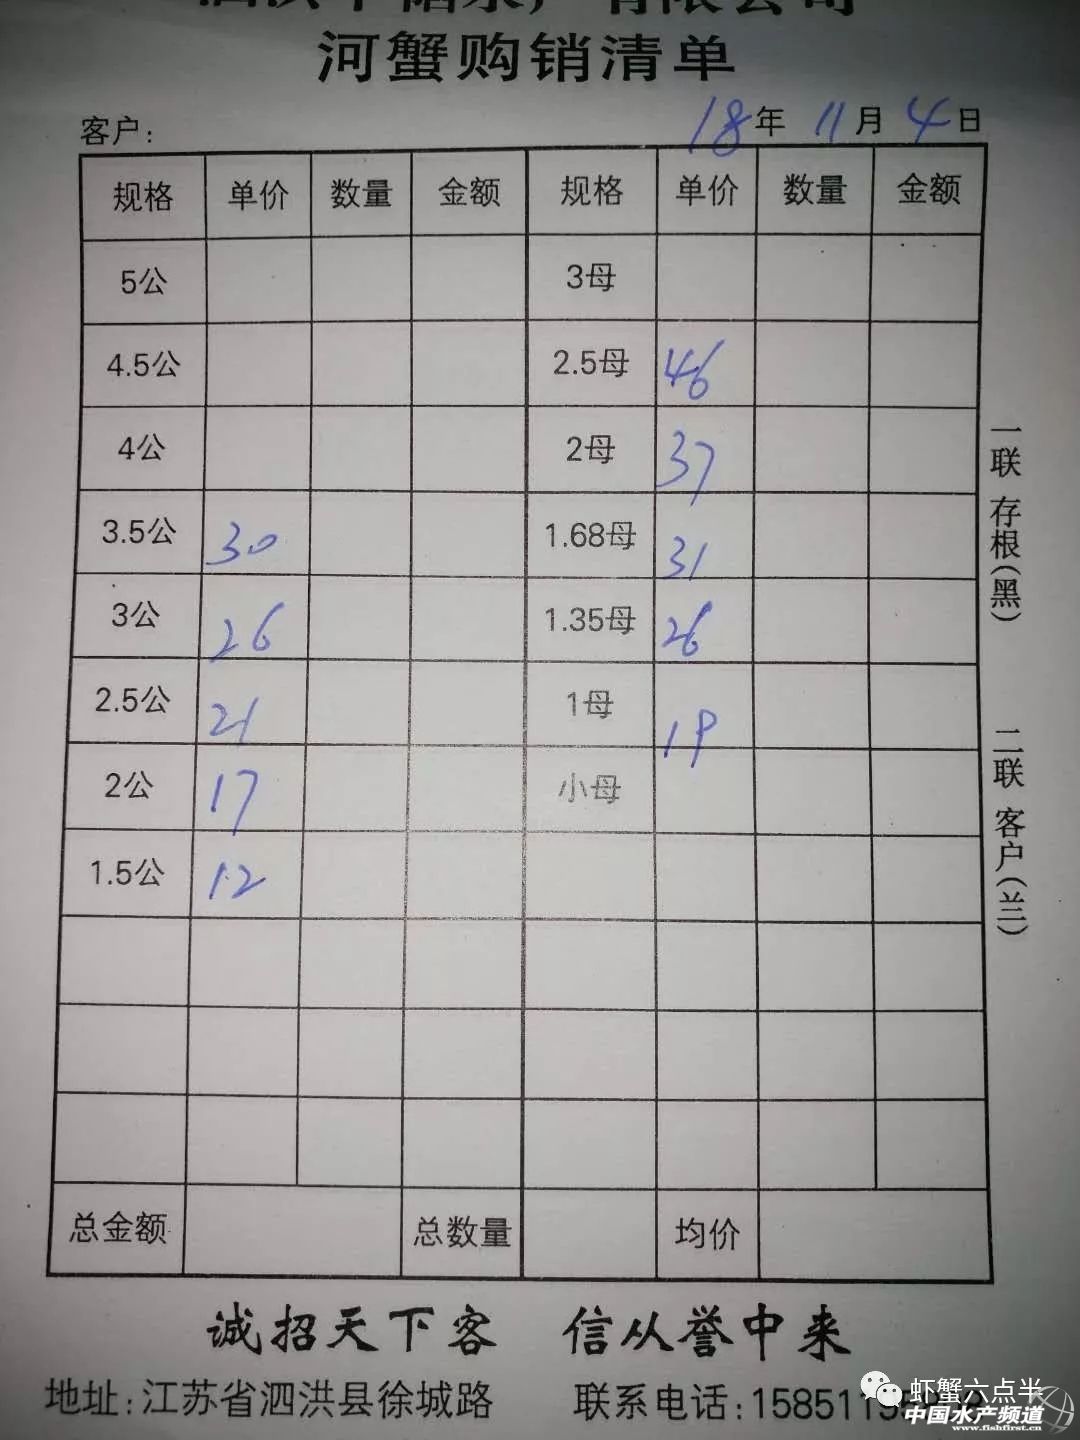 有限公司
河蟹购销清单
客户: 18年 11月 4日
规格 单价 数量 金额 规格 单价 数量 金额
5公 3母
4.5公 2.5母 46
4公 2母 37
3.5公 30 1.68母 31
3公 26 1.35母 26
2.5公 21 1母 19
2公 17 小母
1.5公 12
总金额 总数量 均价
一联 存根(黑) 二联 客户(兰)
诚招天下客 信从誉中来
地址:江苏省泗洪县徐城路 联系电话:158511
虾蟹六点半
中国水产频道
www.fishfirst.cn